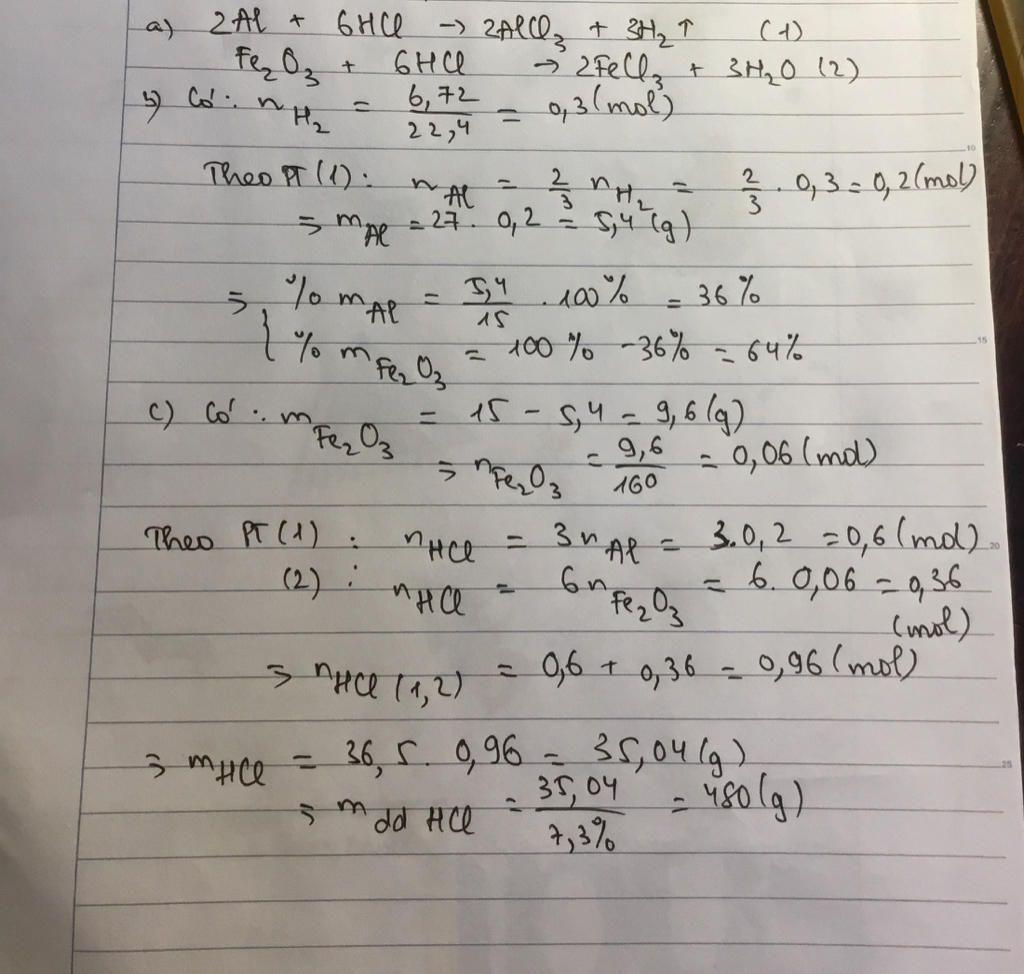 a) 2Al + 6HCl → 2AlCl₃ + 3H₂↑ (1)
Fe₂O₃ + 6HCl → 2FeCl₃ + 3H₂O (2)
b) Có: n_H₂ = 6,72/22,4 = 0,3 (mol)
10
Theo PT (1): n_Al = 2/3 n_H₂ = 2/3 . 0,3 = 0,2 (mol)
⇒ m_Al = 27. 0,2 = 5,4 (g)
⇒ { % m_Al = 5,4/15 . 100% = 36%
% m_Fe₂O₃ = 100% - 36% = 64%
15
c) Có: m_Fe₂O₃ = 15 - 5,4 = 9,6 (g)
⇒ n_Fe₂O₃ = 9,6/160 = 0,06 (mol)
Theo PT (1) : n_HCl = 3n_Al = 3.0,2 = 0,6 (mol)
20
(2) : n_HCl = 6n_Fe₂O₃ = 6. 0,06 = 0,36
(mol)
⇒ n_HCl (1,2) = 0,6 + 0,36 = 0,96 (mol)
⇒ m_HCl = 36,5. 0,96 = 35,04 (g)
25
⇒ m_dd HCl = 35,04/7,3% = 480 (g)